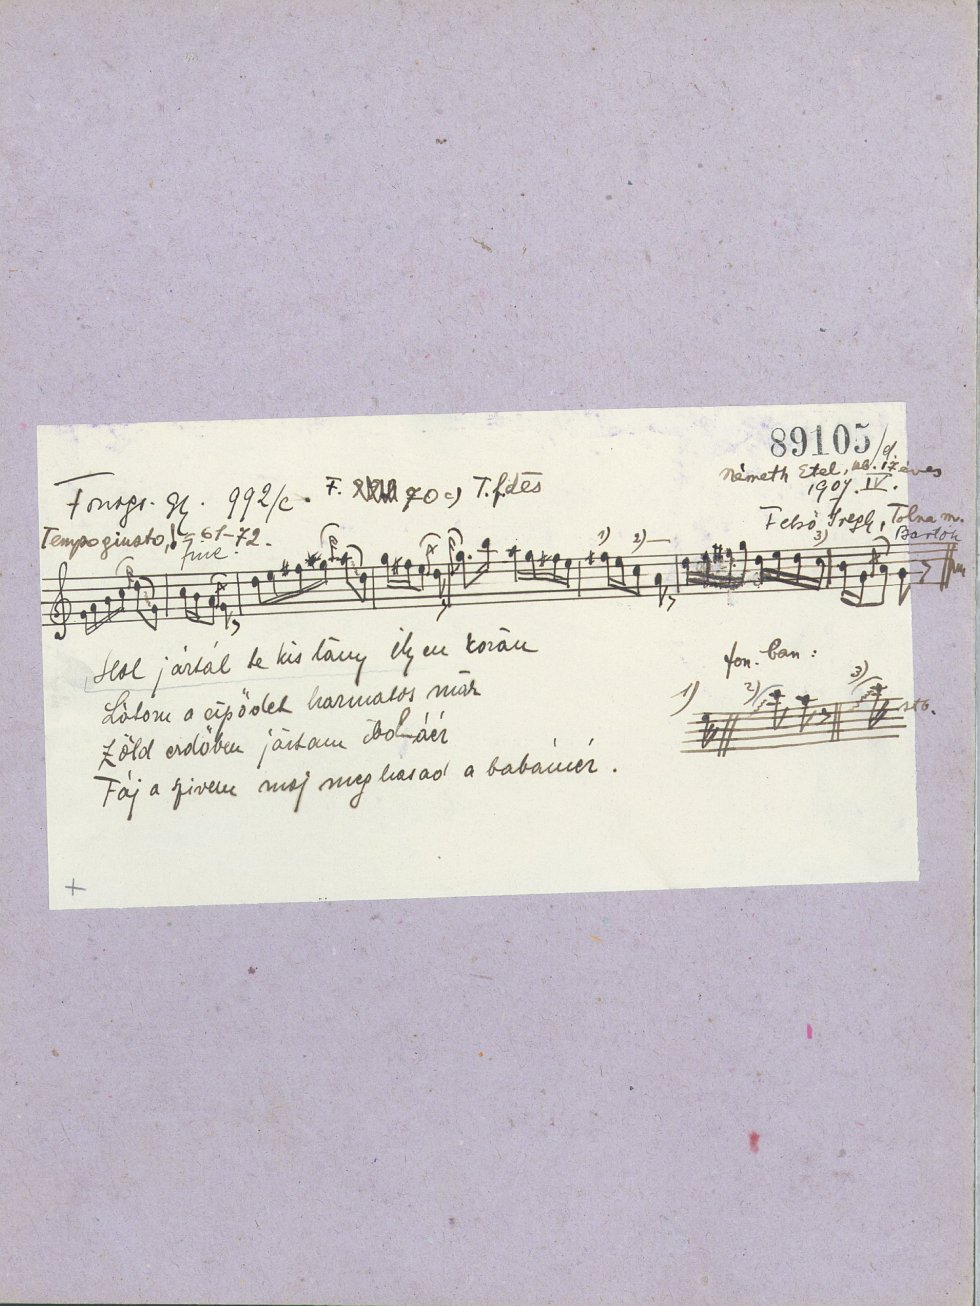 89105/d
Németh Etel, kb. 17 éves
1907. IV.
Fonogr. gy. 992/c. F. 70 c) T.f. dēs
Felső Iregh, Tolna m.
Bartók
Tempo giusto, 61-72.
1) 2) 3)
Hol jártál te kis lány ilyen korán
Látom a cipődet harmatos már
Zöld erdőben jártam
Fáj a szivem maj meg hasad a babámér.
fon. ban:
1) 2) 3) stb.
+